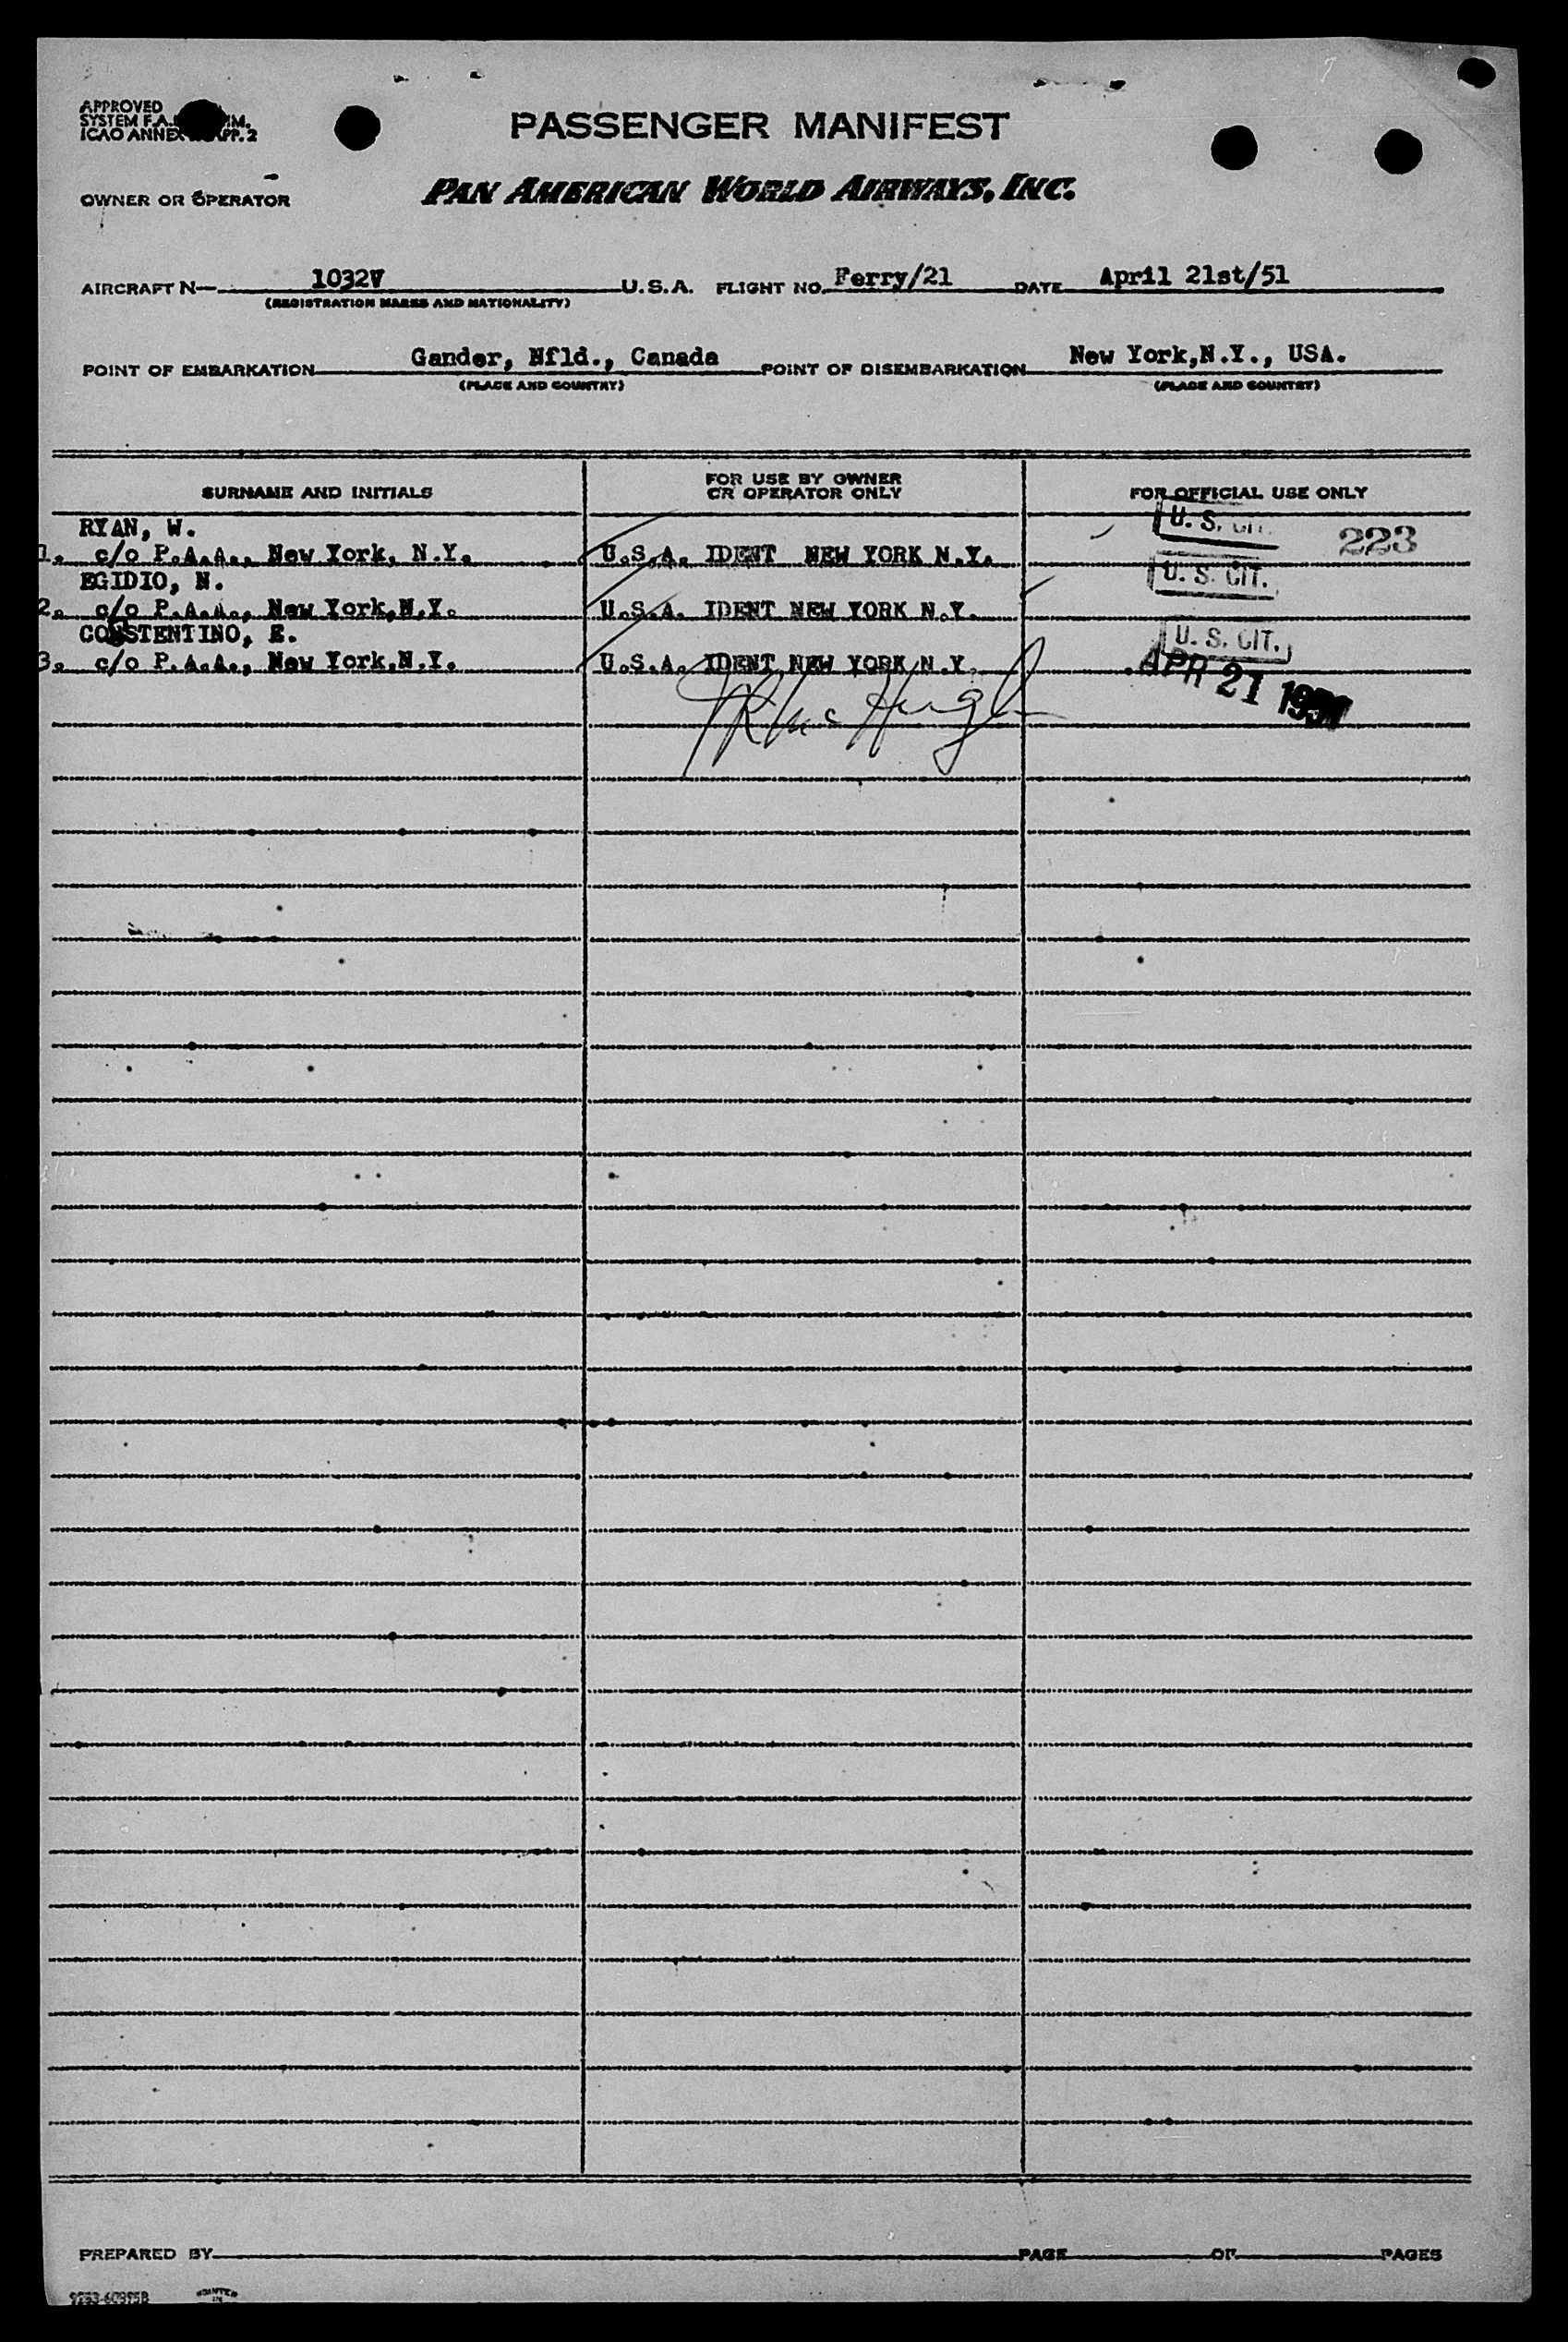 APPROVED
SYSTEM F.A. IM.
ICAO ANNEX APP. 2
PASSENGER MANIFEST
OWNER OR OPERATOR PAN AMERICAN WORLD AIRWAYS, INC.
AIRCRAFT N- 1032V U.S.A. FLIGHT NO. Ferry/21 DATE April 21st/51
(REGISTRATION MARKS AND NATIONALITY)
POINT OF EMBARKATION Gander, Nfld., Canada POINT OF DISEMBARKATION New York,N.Y., USA.
(PLACE AND COUNTRY) (PLACE AND COUNTRY)
SURNAME AND INITIALS FOR USE BY OWNER OR OPERATOR ONLY FOR OFFICIAL USE ONLY
RYAN, W. U. S. CIT. 223
1. c/o P.A.A., New York, N.Y. U.S.A. IDENT NEW YORK N.Y.
EGIDIO, N. U. S. CIT.
2. c/o P.A.A., New York,N.Y. U.S.A. IDENT NEW YORK N.Y.
COSTENTINO, E. U. S. CIT.
3. c/o P.A.A., New York,N.Y. U.S.A. IDENT NEW YORK N.Y.
APR 21 1951
PREPARED BY PAGE OF PAGES
PRINTED
IN